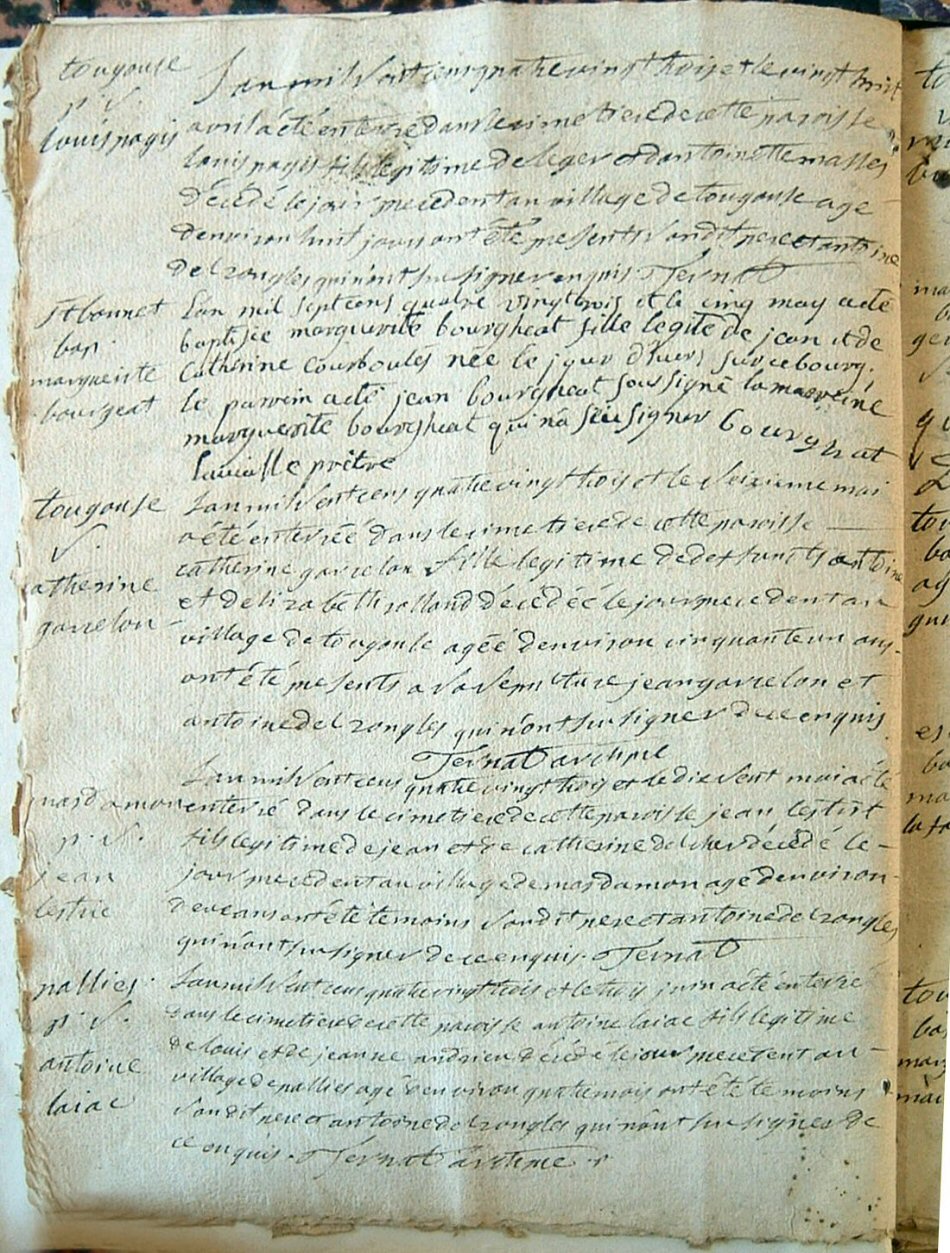 tougouse
p. S.
louis pagis
Lan mil sept cens quatre vingt trois et le vingt huit
avril a été enterré dans le cimetiere de cette paroisse
louis pagis fils legitime de leger et dantoinette masses
décédé le jour precedent au village de tougouse age
denviron huit jours ont été presents son dit pere et antoine
delzongles qui n'ont su signer enquis. Ternat
st bonnet
bap.
marguerite
bourgeat
L'an mil sept cens quatre vingt trois et le cinq may a été
baptisée marguerite bourgheat fille legite de jean et de
Catherine courboulés née le jour d'hiers sur ce bourg.
le parrein a été jean bourgheat soussigné la marreine
marguerite bourgheat qui n'a sçeu signer bourgheat
prêtre
tougouse
S.
catherine
garrelon
Lan mil sept cens quatre vingt trois et le seizieme mai
a été enterréé dans le cimetiere de cette paroisse
catherine garrelon fille legitime de defunts antoine
et delizabeth rolland décédéé le jour precedent au
village de tougouse agéé denviron cinquante un ans
ont été presents a sa sepulture jean garrelon et
antoine delzongles qui n'ont su signer de ce enquis.
Ternat archpre
masdamon
p. S.
jean
lestrie
Lan mil sept cens quatre vingt trois et le dix sept mai a été
enterré dans le cimetiere de cette paroisse jean
fils legitime de jean et de catherine delcher décédé le
jour precedent au village de masdamon agé denviron
deux ans ont été temoins son dit pere et antoine delzongles
qui n'ont su signer de ce enquis. Ternat
pallies.
p. S.
antoine
laiac
Lan mil sept cens quatre vingt trois et le trois juin a été enterré
dans le cimetiere de cette paroisse antoine laiac fils legitime
de louis et de jeanne andrieu décédé le jour precedent au
village de pallies agé denviron quatre mois ont été temoins
son dit pere et antoine delzongles qui n'ont su signer de
ce enquis. Ternat archpre